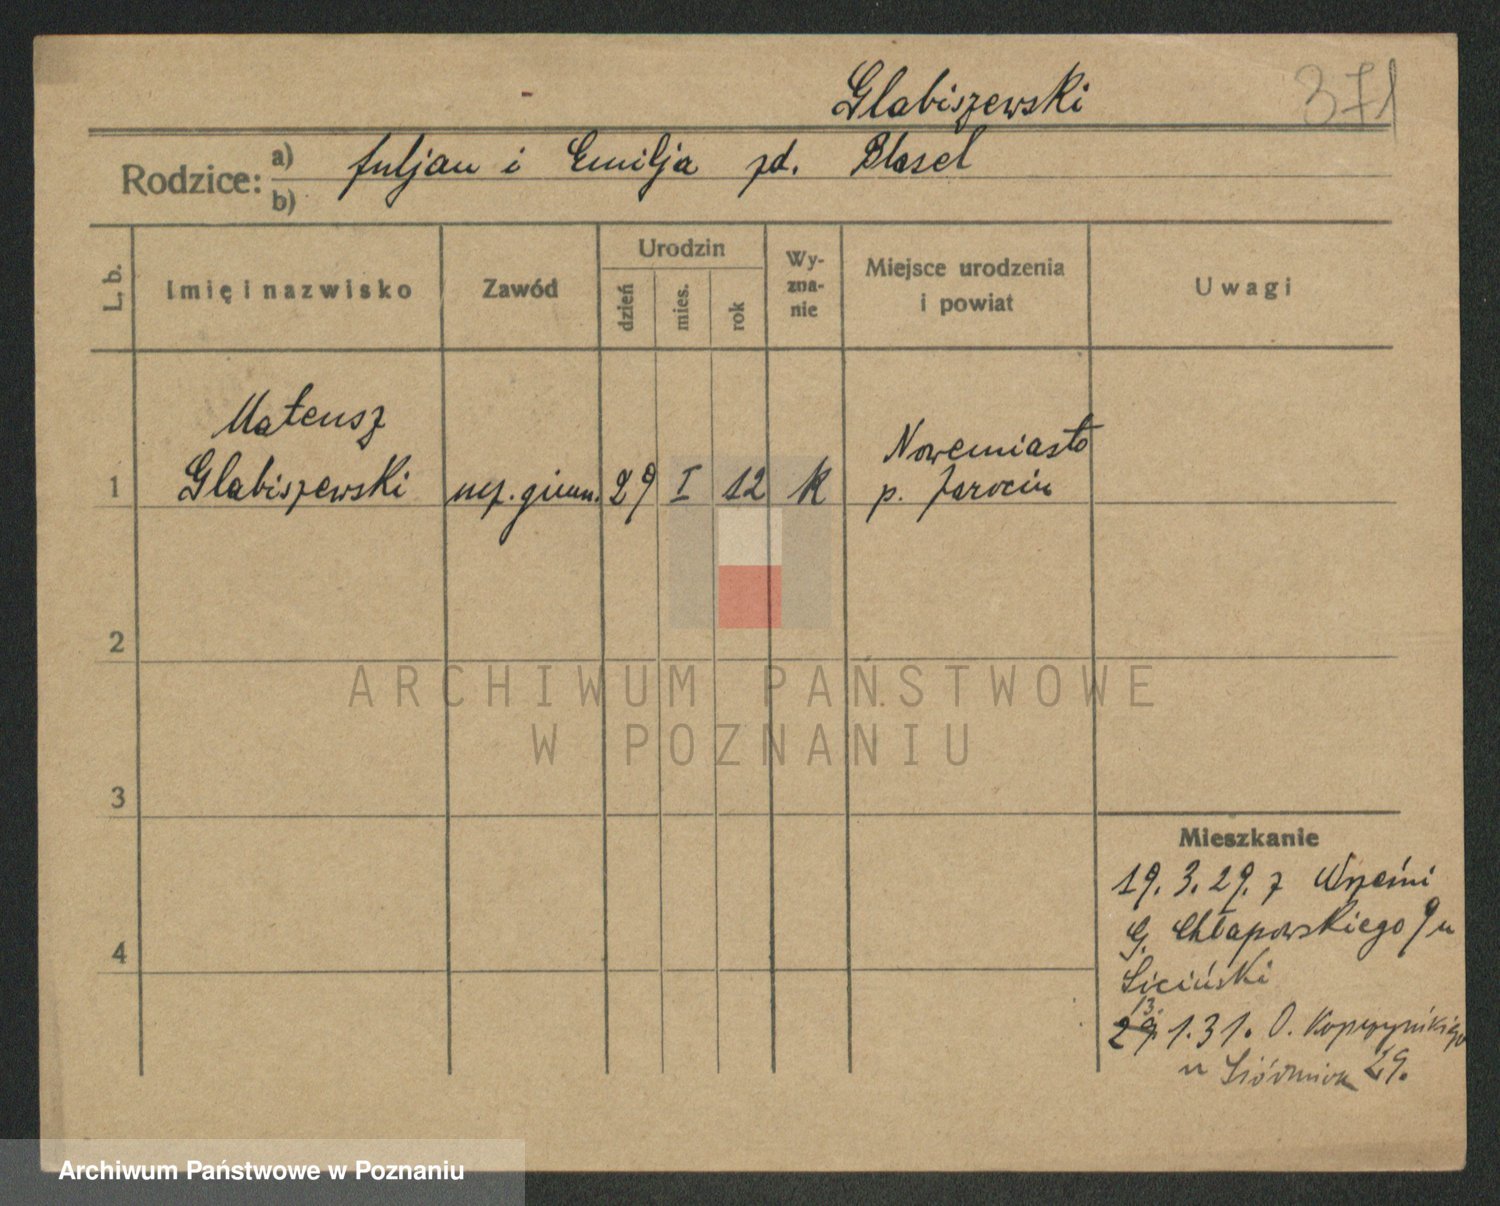 Glabiszewski 371
Rodzice: a) Juljan i Emilja zd. Blasel
b)
L. b. Imię i nazwisko Zawód Urodzin dzień mies. rok Wyznanie Miejsce urodzenia i powiat Uwagi
Mateusz Nowemiasto
1 Glabiszewski ucz. gimn. 29 I 12 k p. Jarocin
2
ARCHIWUM PAŃSTWOWE
W POZNANIU
3
Mieszkanie
19. 3. 29. z Wrześni
4 G. Chłapowskiego 9 u
Siciński
13.
29 1. 31. O. Kopczyńskiego
u 29.
Archiwum Państwowe w Poznaniu